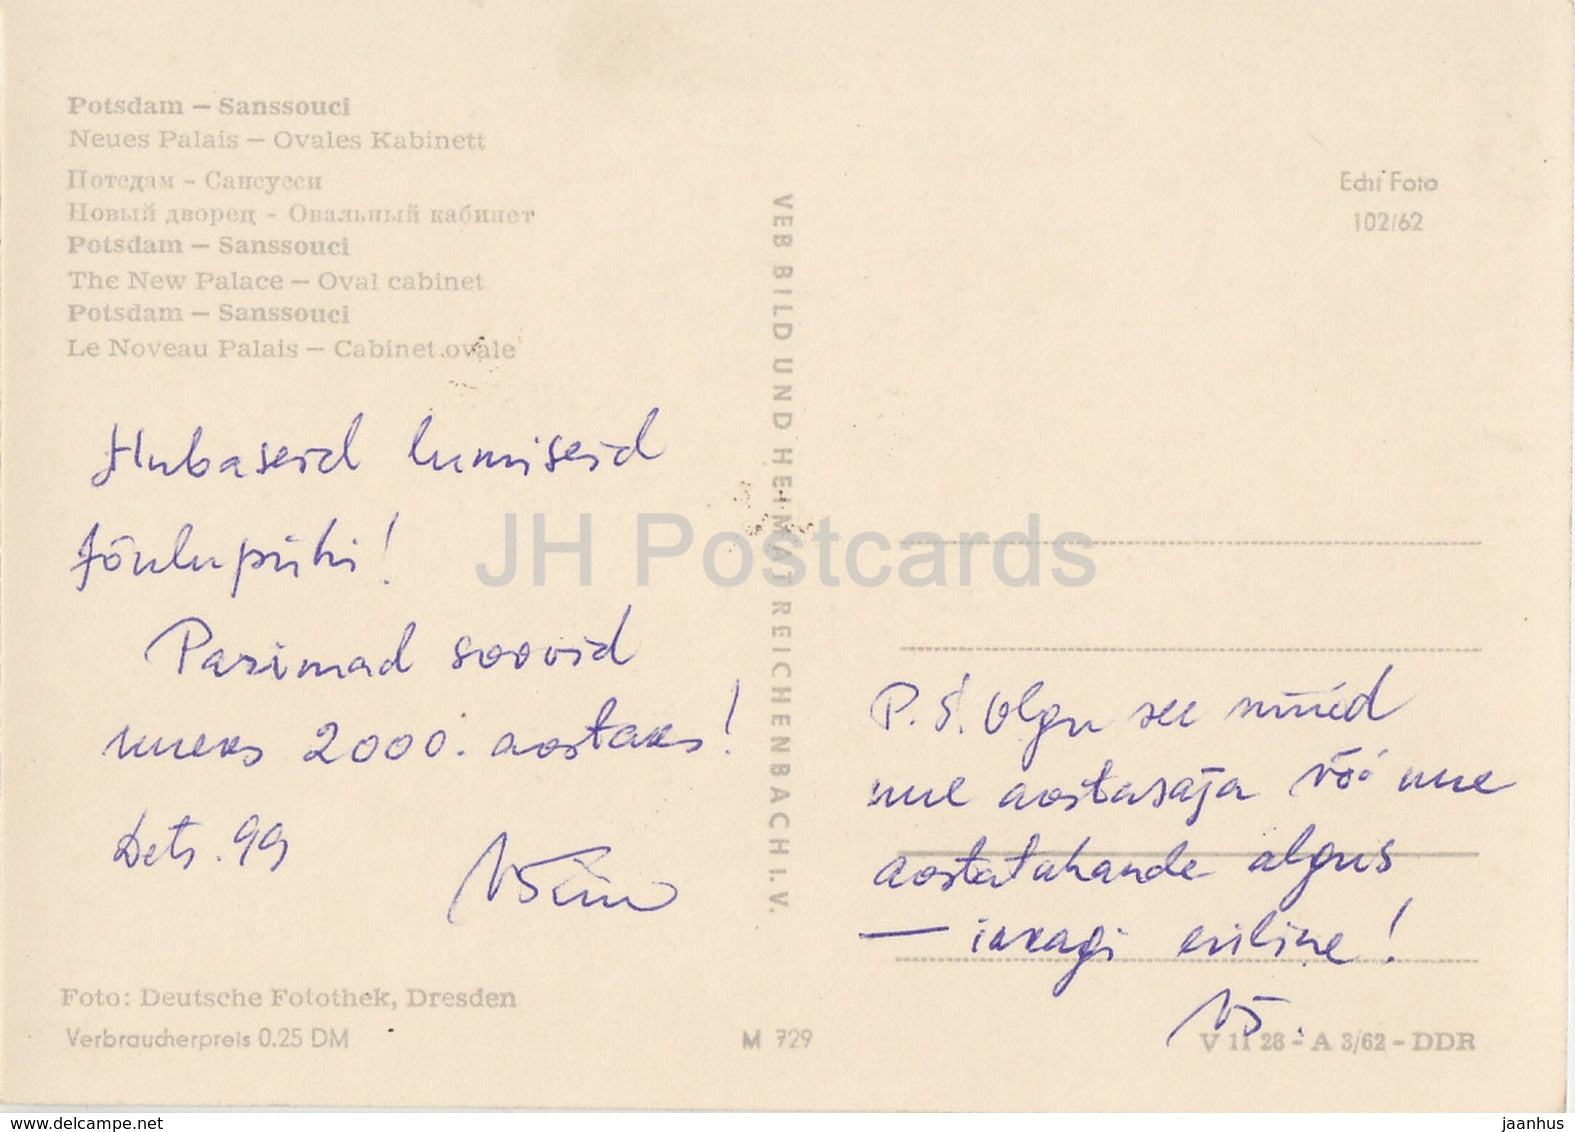 Potsdam – Sanssouci
Neues Palais – Ovales Kabinett
Потсдам - Сансусси
Новый дворец - Овальный кабинет
Potsdam – Sanssouci
The New Palace – Oval cabinet
Potsdam – Sanssouci
Le Noveau Palais – Cabinet ovale
Hubaseid lumiseid
jõulupühi!
Parimad soovid
uueks 2000. aastaks!
Dets. 99
Foto: Deutsche Fotothek, Dresden
Verbraucherpreis 0.25 DM
VEB BILD UND HEIMAT REICHENBACH i. V.
M 729
Echt Foto
102/62
P.S. Olgu see nüüd
uue aastasaja või uue
aastatuhande algus
— ikkagi eriline!
V 11 28 - A 3/62 - DDR
JH Postcards
www.delcampe.net
jaanhus